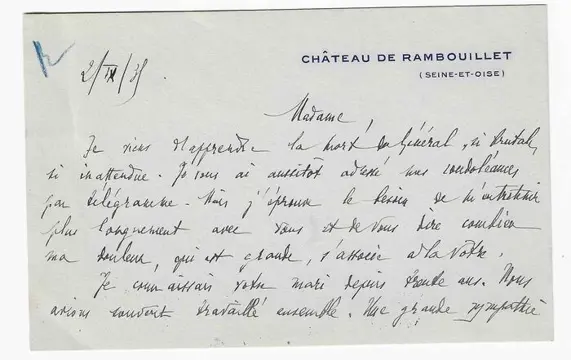 CHÂTEAU DE RAMBOUILLET
(SEINE-ET-OISE)
2/IX/35
Madame,
Je viens d'apprendre la mort du Général, si brutale,
si inattendue. Je vous ai aussitôt adressé mes condoléances
par télégramme. Mais j'éprouve le besoin de m'entretenir
plus longuement avec vous et de vous dire combien
ma douleur, qui est grande, s'associe à la vôtre.
Je connaissais votre mari depuis trente ans. Nous
avions souvent travaillé ensemble. Une grande sympathie